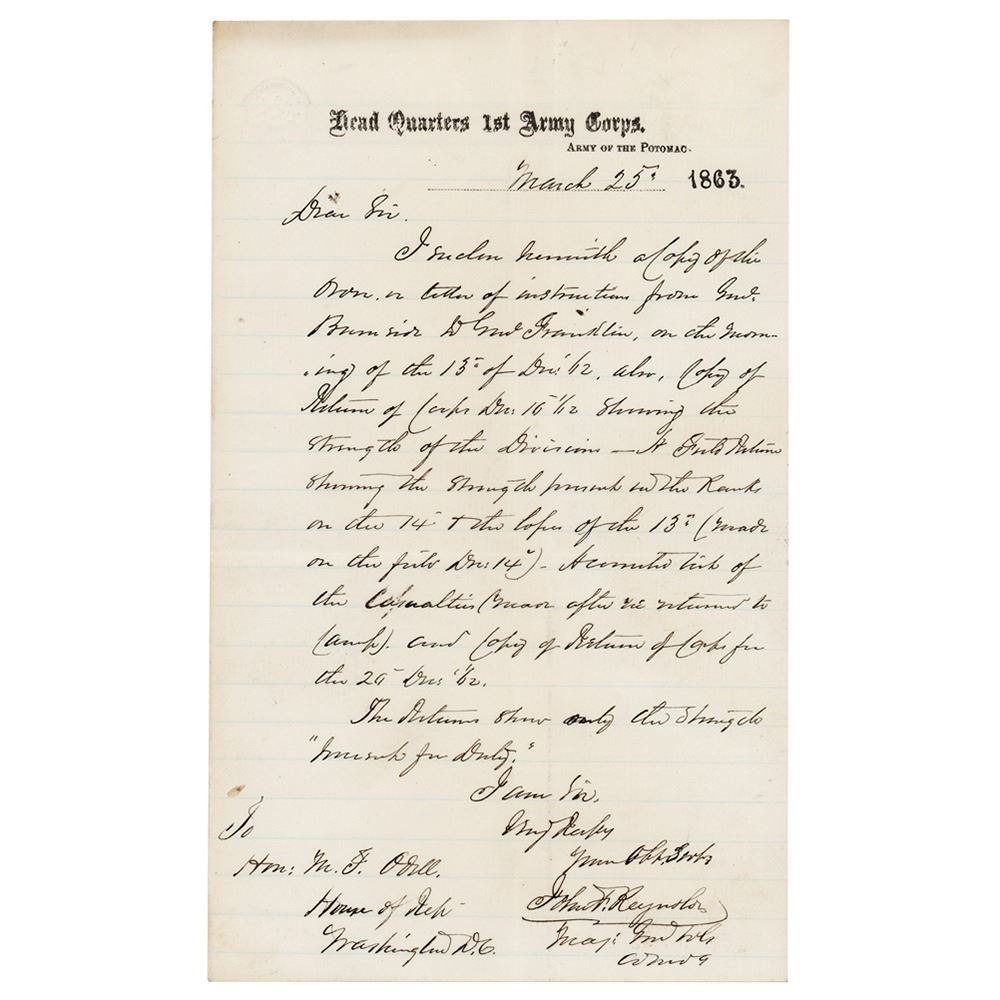 Head Quarters 1st Army Corps.
Army of the Potomac.
March 25" 1863.
Dear Sir.
I enclose herewith a Copy of the
Order or letter of instructions from Genl.
Burnside to Genl Franklin, on the Morn-
ing of the 13" of Dec: '62, also, Copy of
Return of Corps Dec: 10" '62 showing the
strength of the Divisions — A Field Return
showing the strength present in the Ranks
on the 14" & the losses of the 13" (made
on the field Dec: 14") - A corrected list of
the Casualties (made after we returned to
Camp). and Copy of Return of Corps for
the 20" Dec: '62.
The Returns show only the strength
"present for Duty."
I am Sir.
Very Respy
Your Obt. Servt
John F. Reynolds
Maj: Genl Vols
Comdg
To
Hon: M. F. Odell.
House of Rep:
Washington D.C.